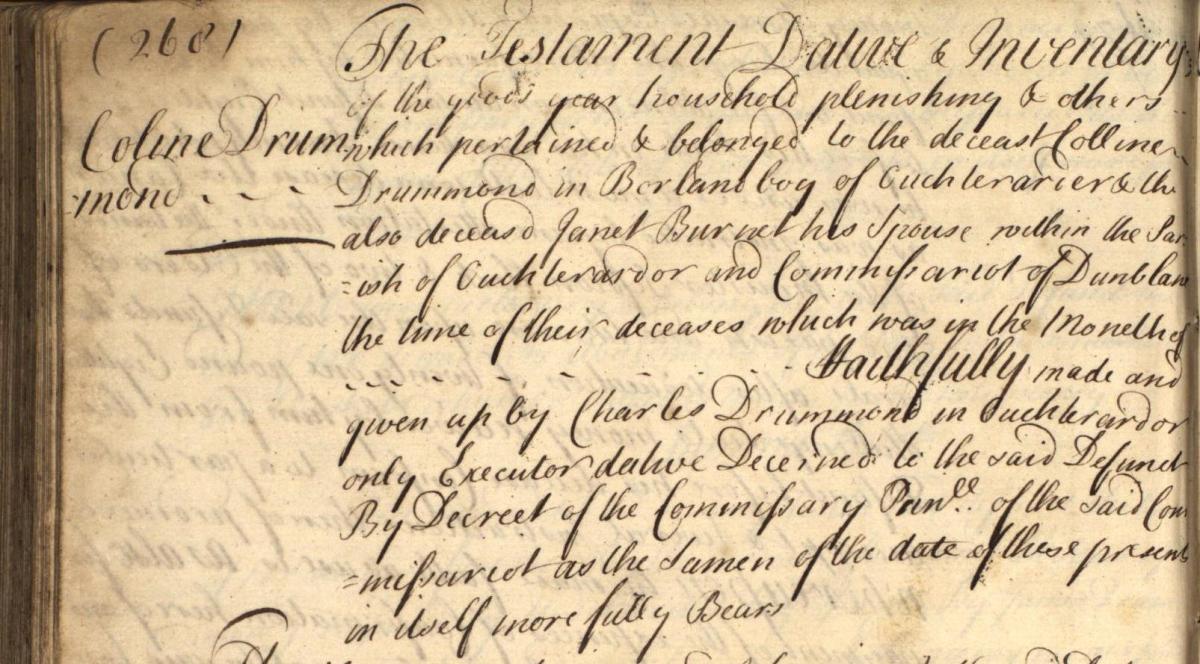 (268)
The Testament Dative & Inventary
of the goods gear household plenishing & others
Coline Drum
=mond
which pertained & belonged to the deceast Colline
Drummond in Borlandbog of Ouchterarder & the
also deceasd Janet Burnet his Spouse within the Par
=ish of Ouchterardor and Commissariot of Dunblane
the time of their deceases which was in the Moneth of
Faithfully made and
given up by Charles Drummond in Ouchterardor
only Executor dative Decerned to the said Defunct
By Decreet of the Commissary of the said Com
=missariot as the Samen of the date of these presents
in itself more fully Bears